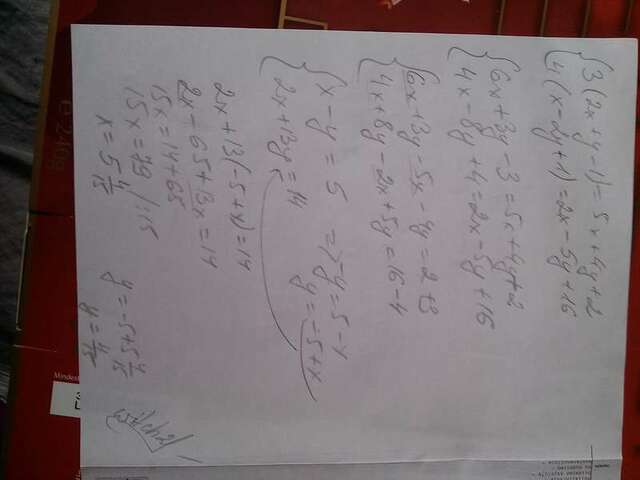 3(2x+y-1)=5x+4y+2
4(x-2y+1)=2x-5y+16
6x+3y-3=5x+4y+2
4x-8y+4=2x-5y+16
6x+3y-5x-4y=2+3
4x-8y-2x+5y=16-4
x-y=5 => -y=5-x
2x+13y=14 y=-5+x
2x+13(-5+x)=14
2x-65+13x=14
15x=14+65
15x=79 /:15
x=5 4/15 y=-5+5 4/15
y=4/15